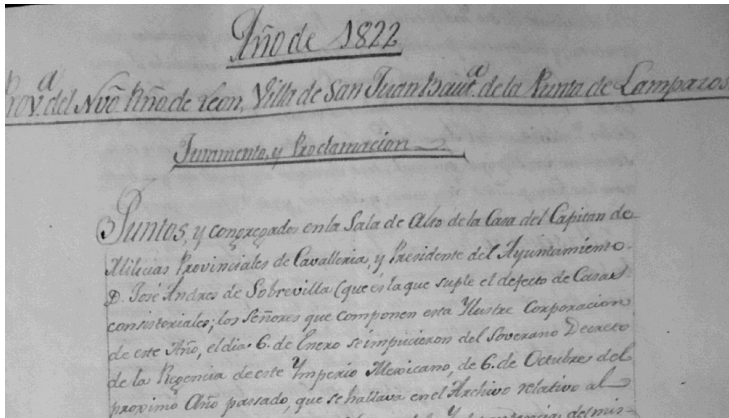 Año de 1822
Prov.ª del Nvõ Rño de Leon, Villa de San Juan Baut.ª de la Punta de Lampazos
Juramento, y Proclamacion
Juntos, y congregados en la Sala de Alto de la Casa del Capitan de
Milicias Provinciales de Cavalleria, y Presidente del Ayuntamiento
D. José Andres de Sobrevilla (que es la que suple el defecto de Casas
consistoriales; los Señores que componen esta Ylustre Corporacion
de este Año, el dia 6. de Enero se impucieron del Soverano Decreto
de la Regencia de este Ymperio Mexicano, de 6. de Octubre del
proximo Año pasado, que se hallava en el Archivo relativo al